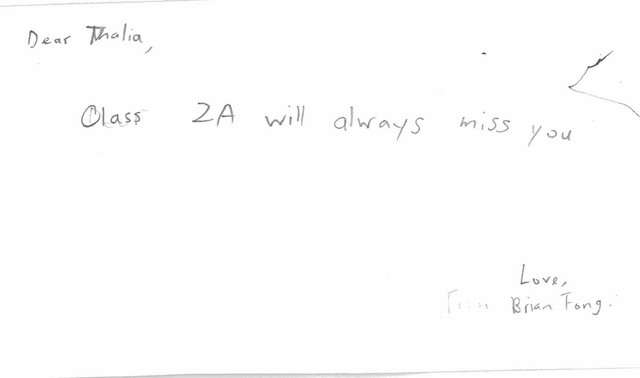 Dear Thalia,
Class 2A will always miss you
Love,
From Brian Fong.